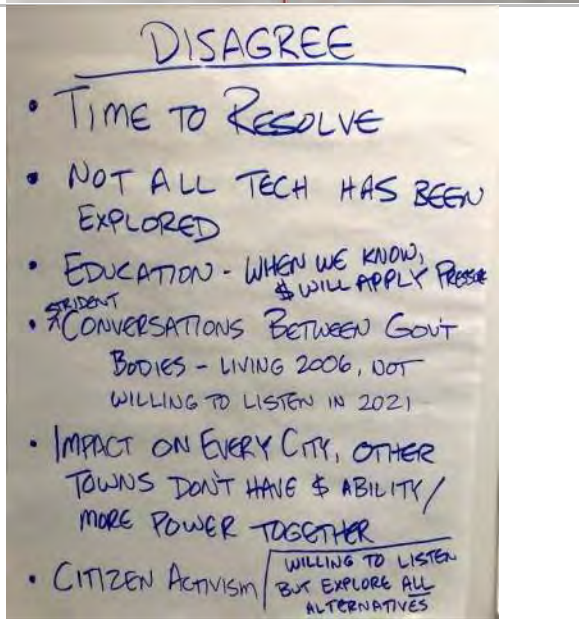 DISAGREE
• TIME TO RESOLVE
• NOT ALL TECH HAS BEEN
EXPLORED
• EDUCATION - WHEN WE KNOW,
$ WILL APPLY PRESSURE
STRIDENT
• ^CONVERSATIONS BETWEEN GOV'T
BODIES - LIVING 2006, NOT
WILLING TO LISTEN IN 2021
• IMPACT ON EVERY CITY, OTHER
TOWNS DON'T HAVE $ ABILITY/
MORE POWER TOGETHER
• CITIZEN ACTIVISM
WILLING TO LISTEN
BUT EXPLORE ALL
ALTERNATIVES